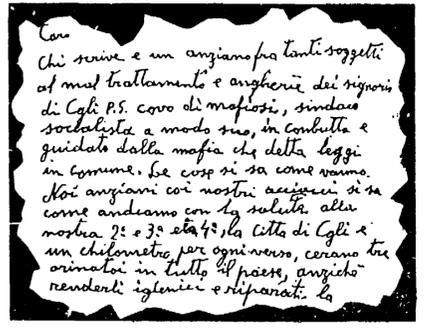 Caro
Chi scrive e un anziano fra tanti soggetti
al mal trattamento e angherie dei signoris
di Cgli P.S. covo di mafiosi, sindaco
socialista a modo suo, in combutta e
guidato dalla mafia che detta leggi
in comune. Le cose si sa come vanno.
Noi anziani coi nostri acciacci si sa
come andiamo con la salute alla
nostra 2ª e 3ª età 4ª, la Citta di Cgli e'
un chilometro per ogni verso, cerano tre
orinatoi in tutto il paese, anzichè
renderli iglenici e riparati. la